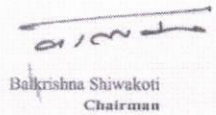 Balkrishna Shiwakoti
Chairman